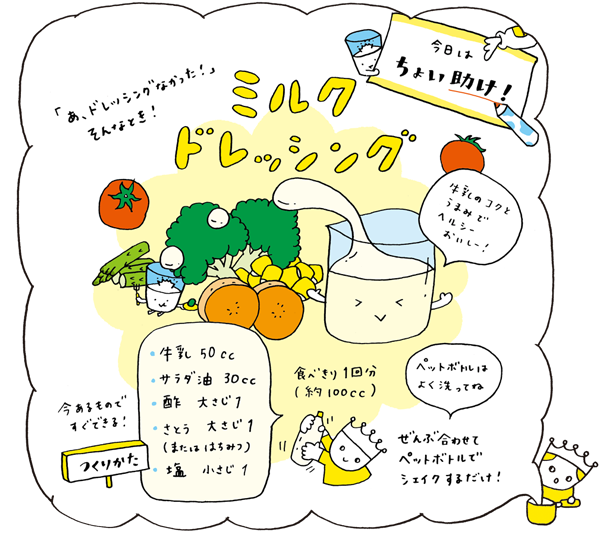 今日は
ちょい助け!
「あ、ドレッシングなかった!」
そんなとき!
ミルク
ドレッシング
牛乳のコクと
うまみで
ヘルシー
おいしー!
牛乳 50cc
サラダ油 30cc
酢 大さじ1
さとう 大さじ1
(またははちみつ)
塩 小さじ1
食べきり1回分
(約100cc)
今あるもので
すぐできる!
つくりかた
ペットボトルは
よく洗ってね
ぜんぶ合わせて
ペットボトルで
シェイクするだけ!